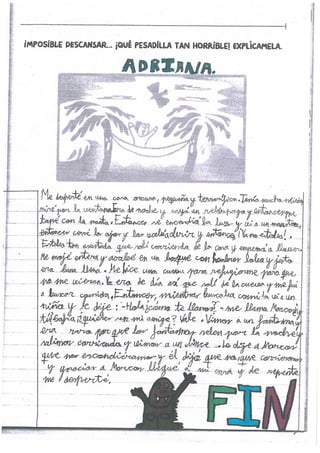 ¡IMPOSIBLE DESCANSAR... ¡QUÉ PESADILLA TAN HORRIBLE! EXPLÍCAMELA.
ADRIANA.
Me desperté en una casa oscura, pequeña y terrorífica. Tenía mucho miedo
miré por la ventana era de noche y cayó un relámpago y entonces me
tapé con la manta. Entonces se encendió la luz y vi a un monstruo,
entonces cerré los ojos y los volví a abrir y entonces ¡Ya no estaba!.
Estaba tan asustada que salí corriendo de la casa y empezó a llover.
Me mojé entera y acabé en un bosque con hombres lobo y justo
era luna llena. Me hice una cueva para refugiarme para que
no me vieran. Ya era de día así que salí de la cueva y me fui
a buscar comida. Entonces, mientras buscaba comida vi a un
niña y le dije: -Hola ¿cómo te llamas? - me llamo Marcos y
tú ¿quieres ser mi amigo? Vale. Vimos a un fantasma y
era raro porque los fantasmas salen por la noche y
salimos corriendo y vimos a un lince. Le dije a Marcos
que nos escondiéramos y él dijo que no que corriéramos
y gracias a Marcos llegué a mi casa y de repente
me desperté.
FIN